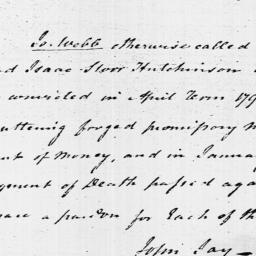 Jo. Webb otherwise called
Isaac Storr Hutchinson
convicted in April Term 179
uttering forged promissory
of Money, and in Janua
gment of Death passed aga
a pardon for Each of th
John Jay